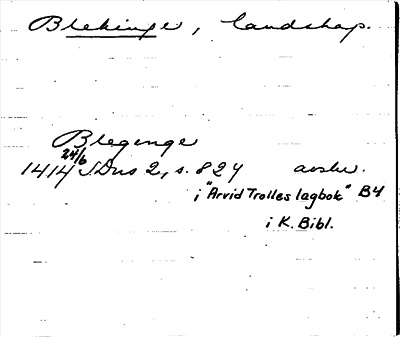 Blekinge, landskap.
Blegenge
24/6
1414 SDns 2, s. 824 avskr.
i "Arvid Trolles lagbok" B4
i K. Bibl.